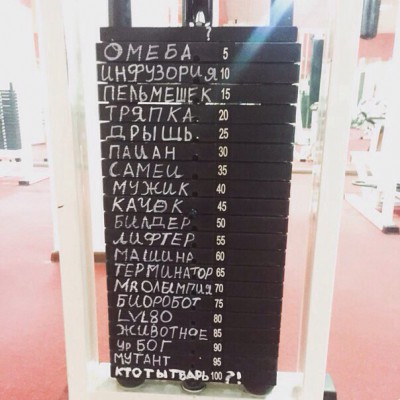 ?
ОМЕБА 5
ИНФУЗОРИЯ 10
ПЕЛЬМЕШЕК 15
ТРЯПКА 20
ДРЫЩЬ 25
ПАЦАН 30
САМЕЦ 35
МУЖИК 40
КАЧОК 45
БИЛДЕР 50
ЛИФТЕР 55
МАШИНА 60
ТЕРМИНАТОР 65
MR ОЛИМПИЯ 70
БИОРОБОТ 75
LVL80 80
ЖИВОТНОЕ 85
УР БОГ 90
МУТАНТ 95
КТО ТЫ ТВАРЬ 100 ?!